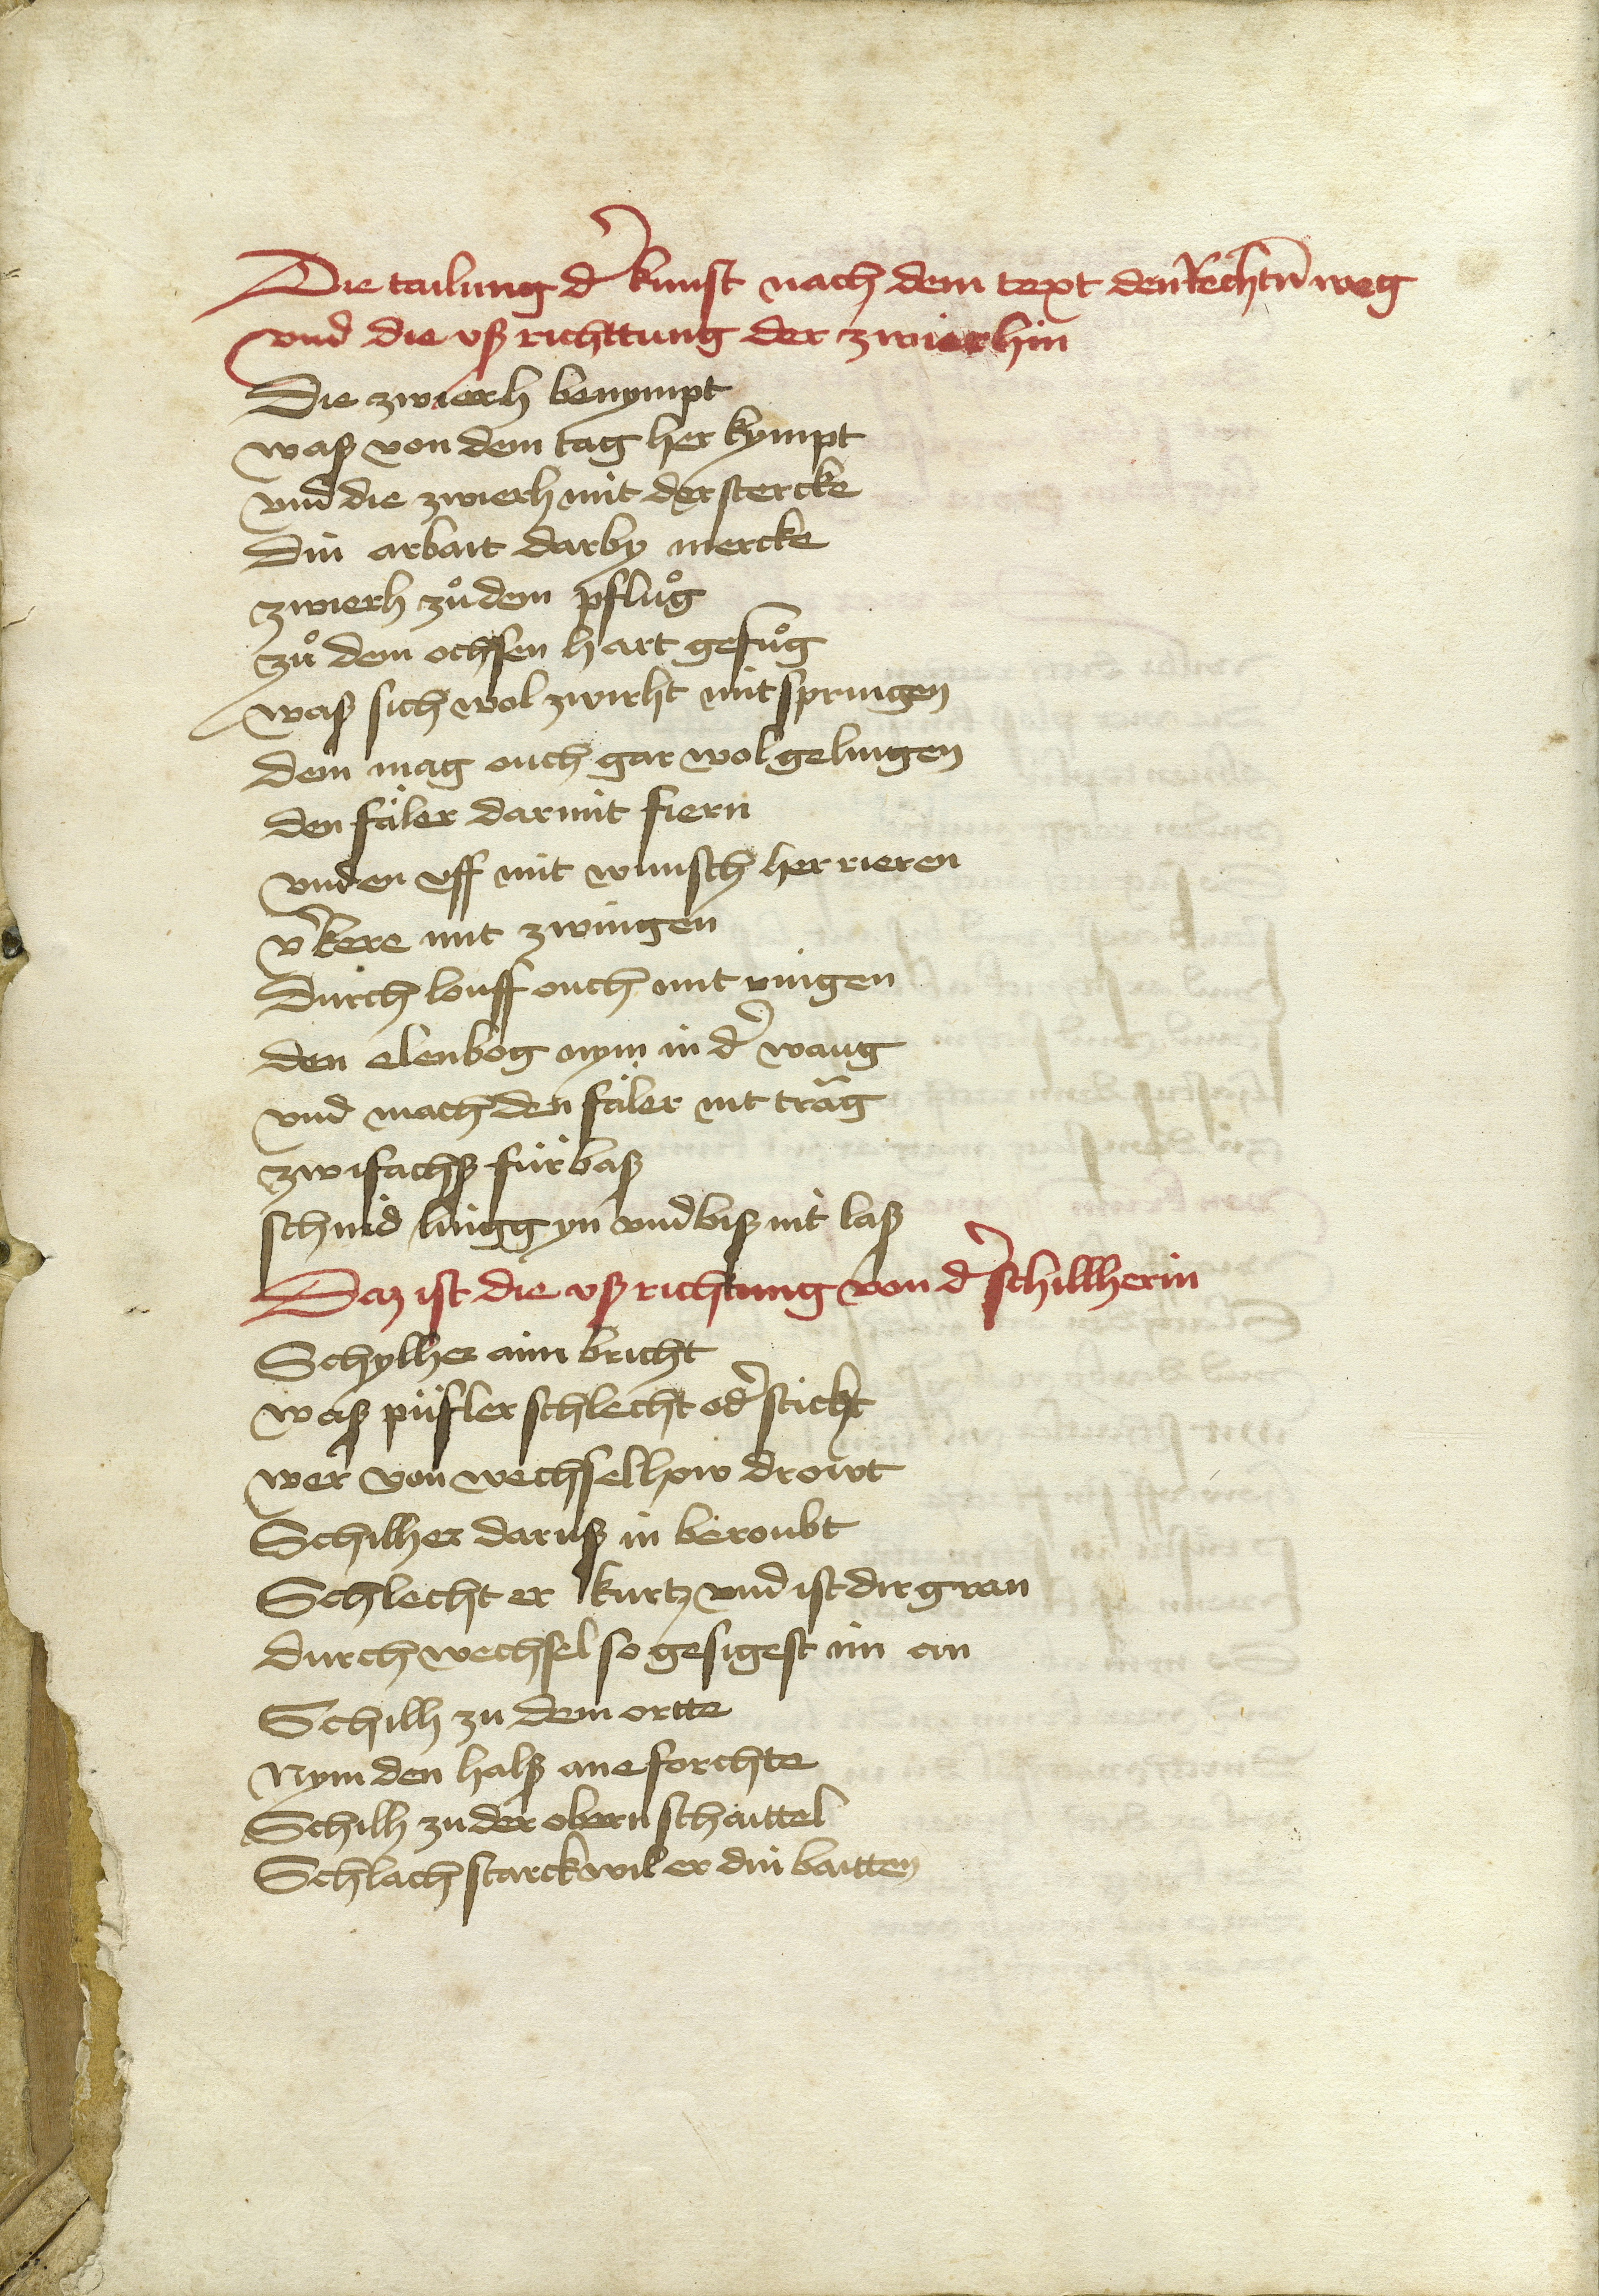 Die tailung d' kunst nach dem text den Rechtn̄ weg
vnd die vß richttung der zwierhin
Die zwierh benympt
waß von dem tag her kympt
vnd die zwierh mit der stercke
Din arbait darby mercke
zwierh zů dem pflůg
zů dem ochsen hart gefůg
waß sich wol zwirht mit springen
dem mag ouch gar wol gelingen
den fäler darmit fiern
vnden vff mit wunsch her rieren
v'kere mit zwingen
Durch louff ouch mit ringen
den elenbog nym in d' waug
vnd mach den fäler nit träg
zwifachß für baß
schnid lingg yn vnd biß nit laß
Daz ist die vß richtung von d' schillherin
Schylher ain bricht
waß püfler schlecht od' sticht
wer von wechsel how drowt
Schilher daruß in beroubt
Schlecht er kurtz vnd ist dir gran
durch wechsel so gesigest im an
Schilh zu dem ortte
Nym den halß ane forchte
Schilh zu der obern schaittel
Schlach starck wil er din baitten